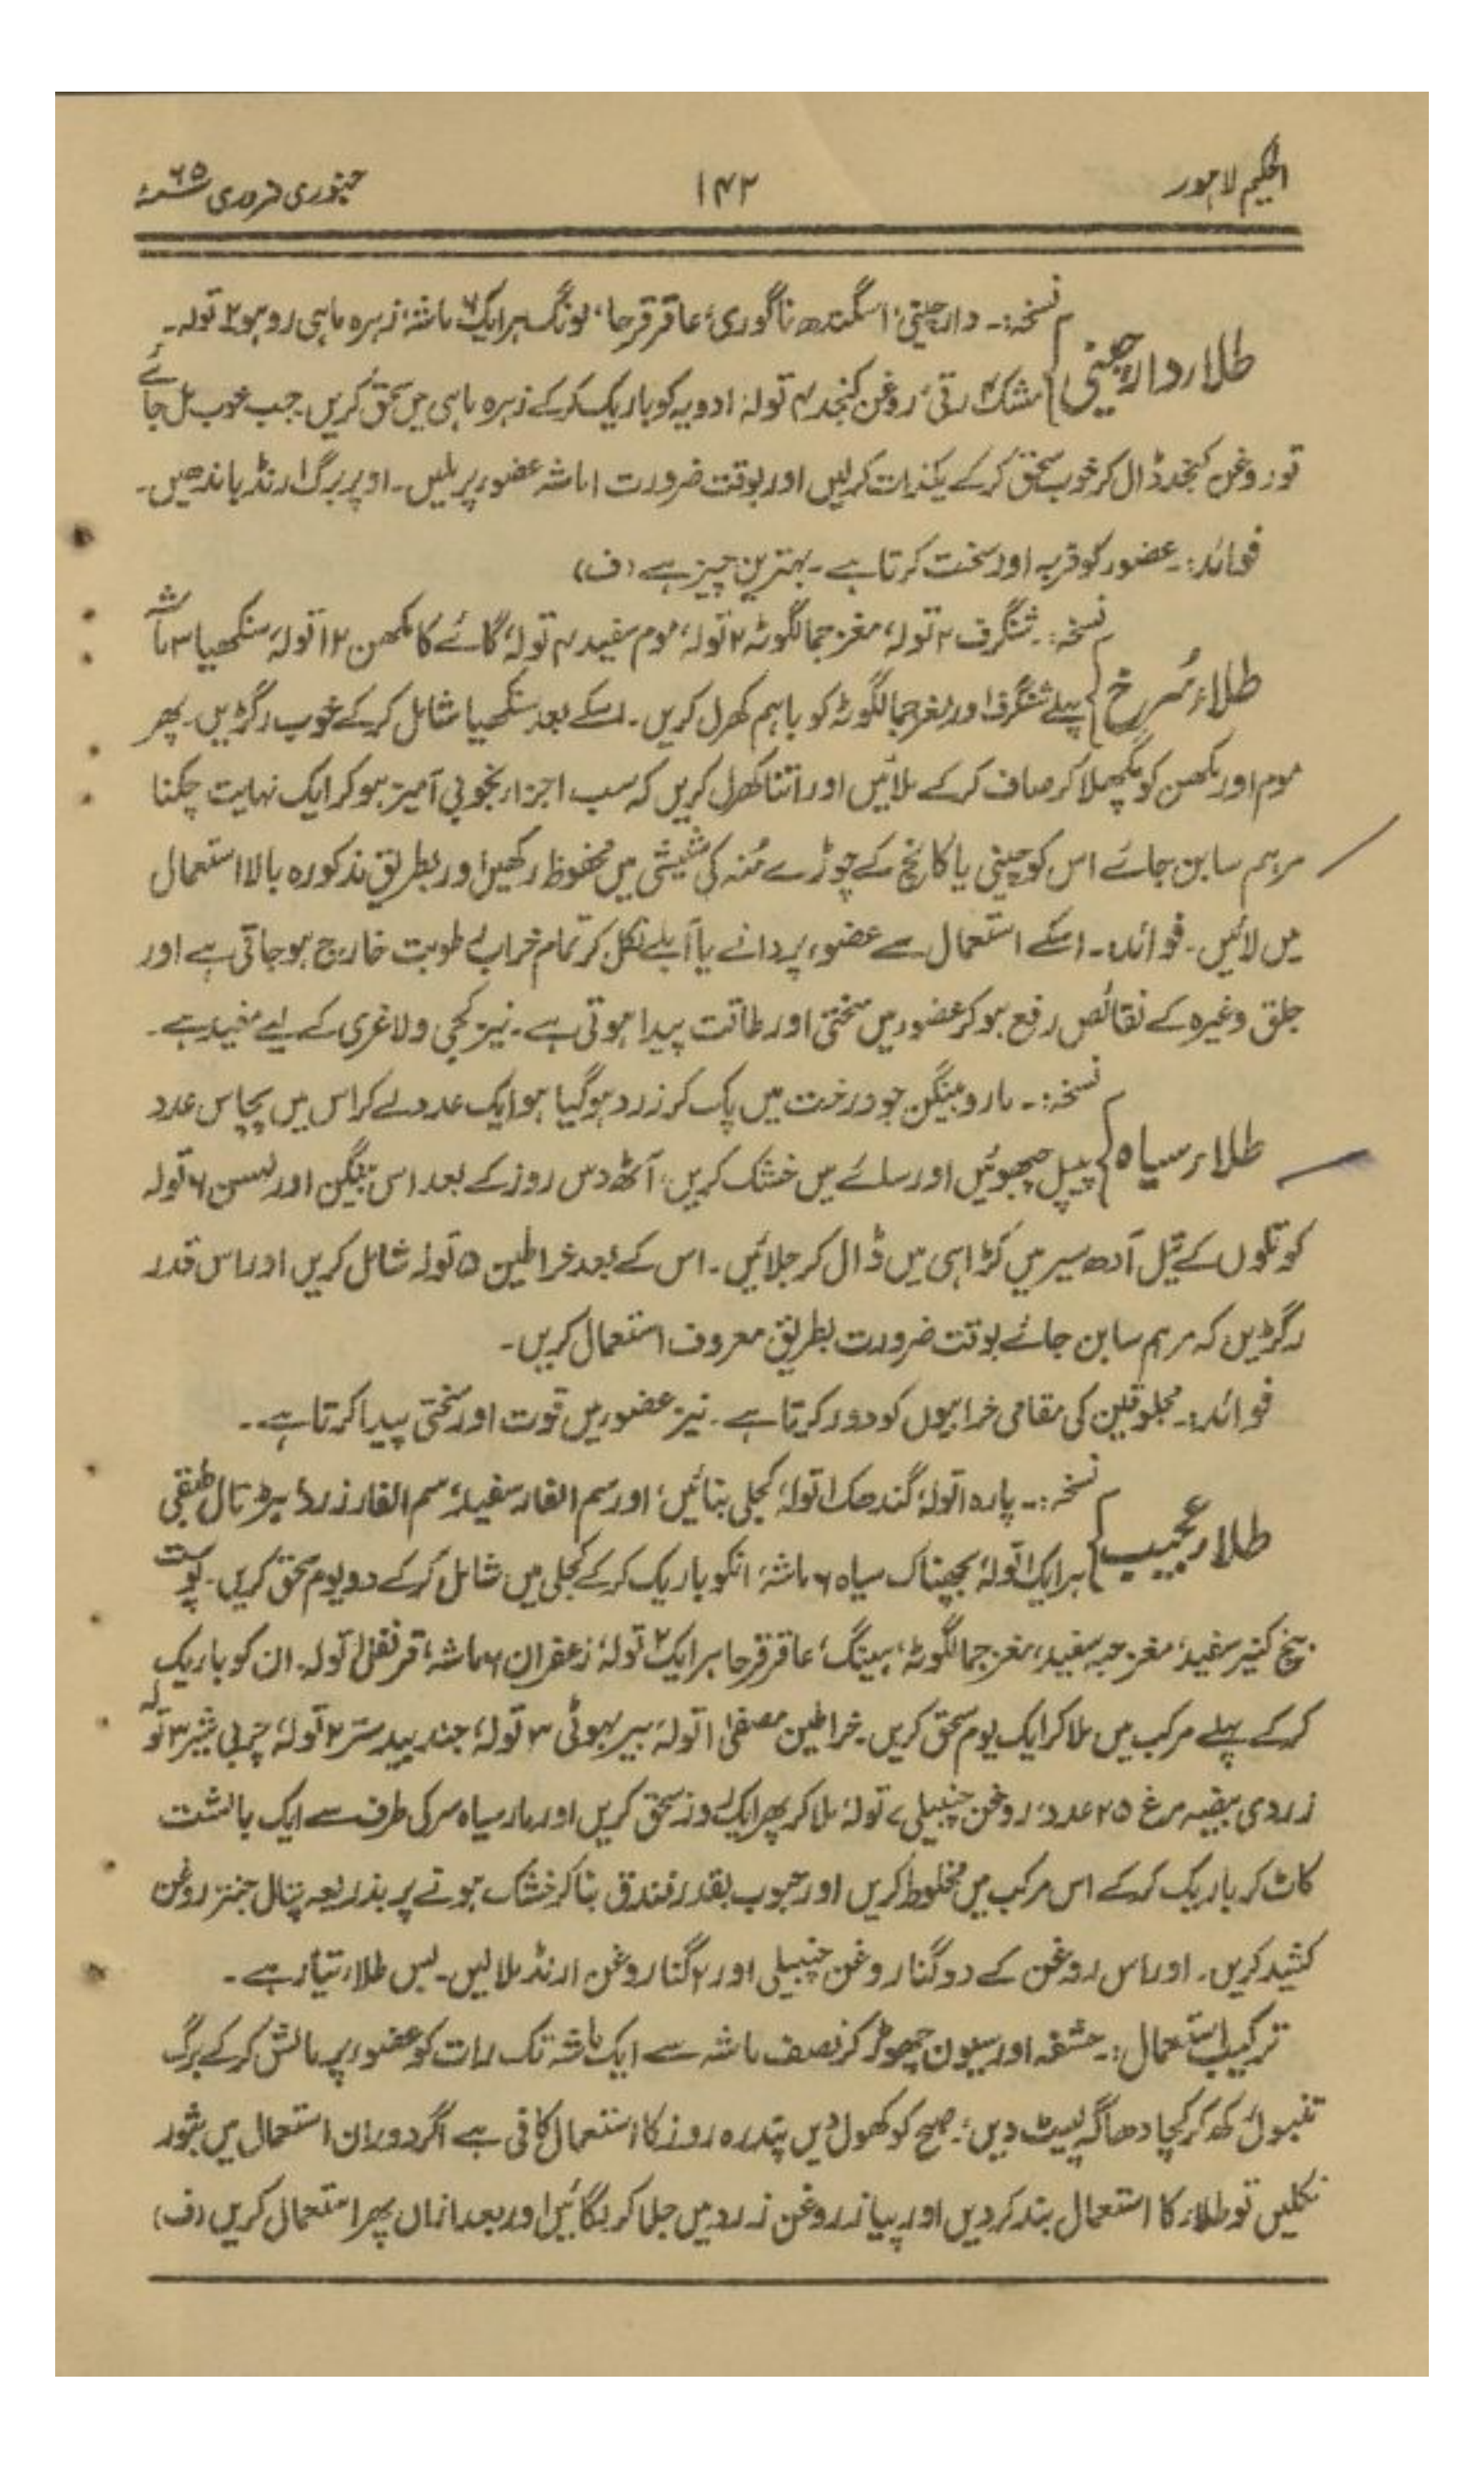 الحکیم لاہور
۱۴۲
جنوری فروری ۶۵ء
طلاء دارچینی
نسخہ:۔ دارچینی، اسگندھ ناگوری، عاقرقرحا، لونگ ہر ایک ۶ ماشہ، زہرہ ماہی روہو ۲ تولہ۔
مشک ۴ رتی، روغن کنجد ۴ تولہ، ادویہ کو باریک کرکے زہرہ ماہی میں سحق کریں جب خوب مل جائے
تو روغن کنجد ڈال کر خوب سحق کرکے یکذات کرلیں اور بوقت ضرورت ۱ ماشہ عضو پر ملیں۔ اوپر برگ ارنڈ باندھیں۔
فوائد:۔ عضو کو فربہ اور سخت کرتا ہے۔ بہترین چیز ہے (ف)
طلاء سُرخ
نسخہ:۔ شنگرف ۲ تولہ، مغز جمالگوٹہ ۲ تولہ، موم سفید ۴ تولہ، گائے کا مکھن ۱۲ تولہ، سنکھیا ۳ ماشہ
پہلے شنگرف اور مغز جمالگوٹہ کو باہم کھرل کریں۔ اسکے بعد سنکھیا شامل کرکے خوب رگڑیں۔ پھر
موم اور مکھن کو پگھلا کر صاف کرکے ملائیں اور اتنا کھرل کریں کہ سب اجزاء بخوبی آمیز ہوکر ایک نہایت چکنا
مرہم سا بن جائے اس کو چینی یا کانچ کے چوڑے مُنہ کی شیشی میں محفوظ رکھیں اور بطریق مذکورہ بالا استعمال
میں لائیں۔ فوائد:۔ اسکے استعمال سے عضو پر دانے یا آبلے نکل کر تمام خراب رطوبت خارج ہوجاتی ہے اور
جلق وغیرہ کے نقائص رفع ہوکر عضو میں سختی اور طاقت پیدا ہوتی ہے۔ نیز کجی و لاغری کے لیے مفید ہے۔
طلاء سیاہ
نسخہ:۔ مارو بینگن جو درخت میں پک کر زرد ہوگیا ہو ایک عدد لے کر اس میں پچاس عدد
پیپل چبھوئیں اور سائے میں خشک کریں، آٹھ دس روز کے بعد اس بینگن اور لہسن ۶ تولہ
کو تلوں کے تیل آدھ سیر میں کڑاہی میں ڈال کر جلائیں۔ اس کے بعد خراطین ۵ تولہ شامل کریں اور اس قدر
رگڑیں کہ مرہم سا بن جائے بوقت ضرورت بطریق معروف استعمال کریں۔
فوائد:۔ مجلوقین کی مقامی خرابیوں کو دور کرتا ہے۔ نیز عضو میں قوت اور سختی پیدا کرتا ہے۔
طلاء عجیب
نسخہ:۔ پارہ ۱ تولہ، گندھک ۱ تولہ، کجلی بنائیں، اور سم الفار سفید، سم الفار زرد، ہڑتال طبقی
ہر ایک ۱ تولہ، بچھناک سیاہ ۶ ماشہ، انکو باریک کرکے کجلی میں شامل کرکے دو یوم سحق کریں۔ پوست
بیخ کنیر سفید، مغز حبہ سفید، مغز جمالگوٹہ، ہینگ، عاقرقرحا ہر ایک ۲ تولہ، زعفران ۶ ماشہ، قرنفل ۱ تولہ۔ ان کو باریک
کرکے پہلے مرکب میں ملا کر ایک یوم سحق کریں۔ خراطین مصفیٰ ۱ تولہ، بیر بہوٹی ۳ تولہ، جند بیدستر ۲ تولہ، چربی شیر ۳ تولہ
زردی بیضہ مرغ ۲۵ عدد، روغن چنبیلی ۷ تولہ، ملا کر پھر ایک روز سحق کریں اور مار سیاہ سر کی طرف سے ایک بالشت
کاٹ کر باریک کرکے اس مرکب میں مخلوط کریں اور حبوب بقدر فندق بنا کر خشک ہونے پر بذریعہ پتال جنتر روغن
کشید کریں۔ اور اس روغن کے دوگنا روغن چنبیلی اور ۲ گنا روغن ارنڈ ملالیں۔ بس طلاء تیار ہے۔
ترکیب استعمال:۔ حشفہ اور سیون چھوڑ کر نصف ماشہ سے ایک ماشہ تک رات کو عضو پر مالش کرکے برگ
تنبول رکھ کر کچا دھاگہ لپیٹ دیں، صبح کو کھول دیں پندرہ روز کا استعمال کافی ہے اگر دوران استعمال میں بثور
نکلیں تو طلاء کا استعمال بند کردیں اور پیاز روغن زرد میں جلا کر لگائیں اور بعد ازاں پھر استعمال کریں (ف)